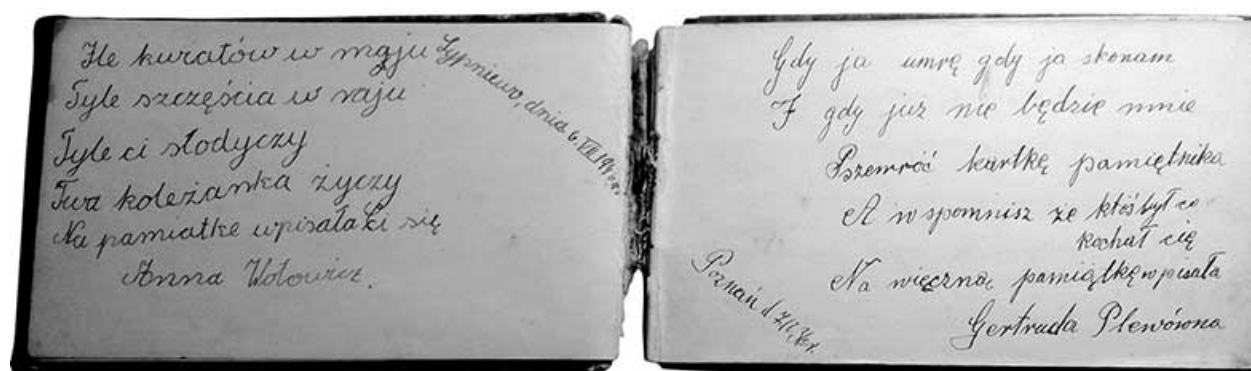 Ile kwiatów w maju
Tyle szczęścia w raju
Tyle ci słodyczy
Twa koleżanka życzy
Na pamiatke wpisała Ci się
Anna Wołowicz.
Sypniewo, dnia 6. VII 19
Gdy ja umrę gdy ja skonam
I gdy już nie będzie mnie
Pszewróć kartkę pamiętnika
A wspomnisz że ktoś był co
kochał cię
Na wieczną pamiątkę wpisała
Gertruda Plewówna
Poznań d